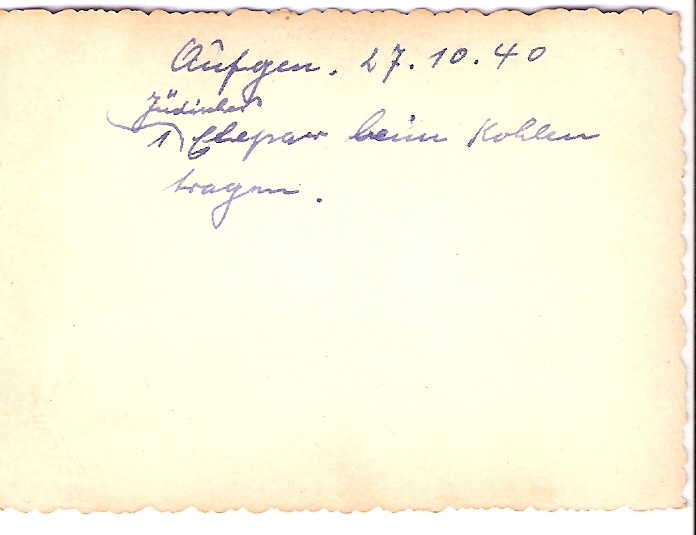 Aufgen. 27.10.40
Jüdisches
1 Ehepar beim Kohlen
tragen.